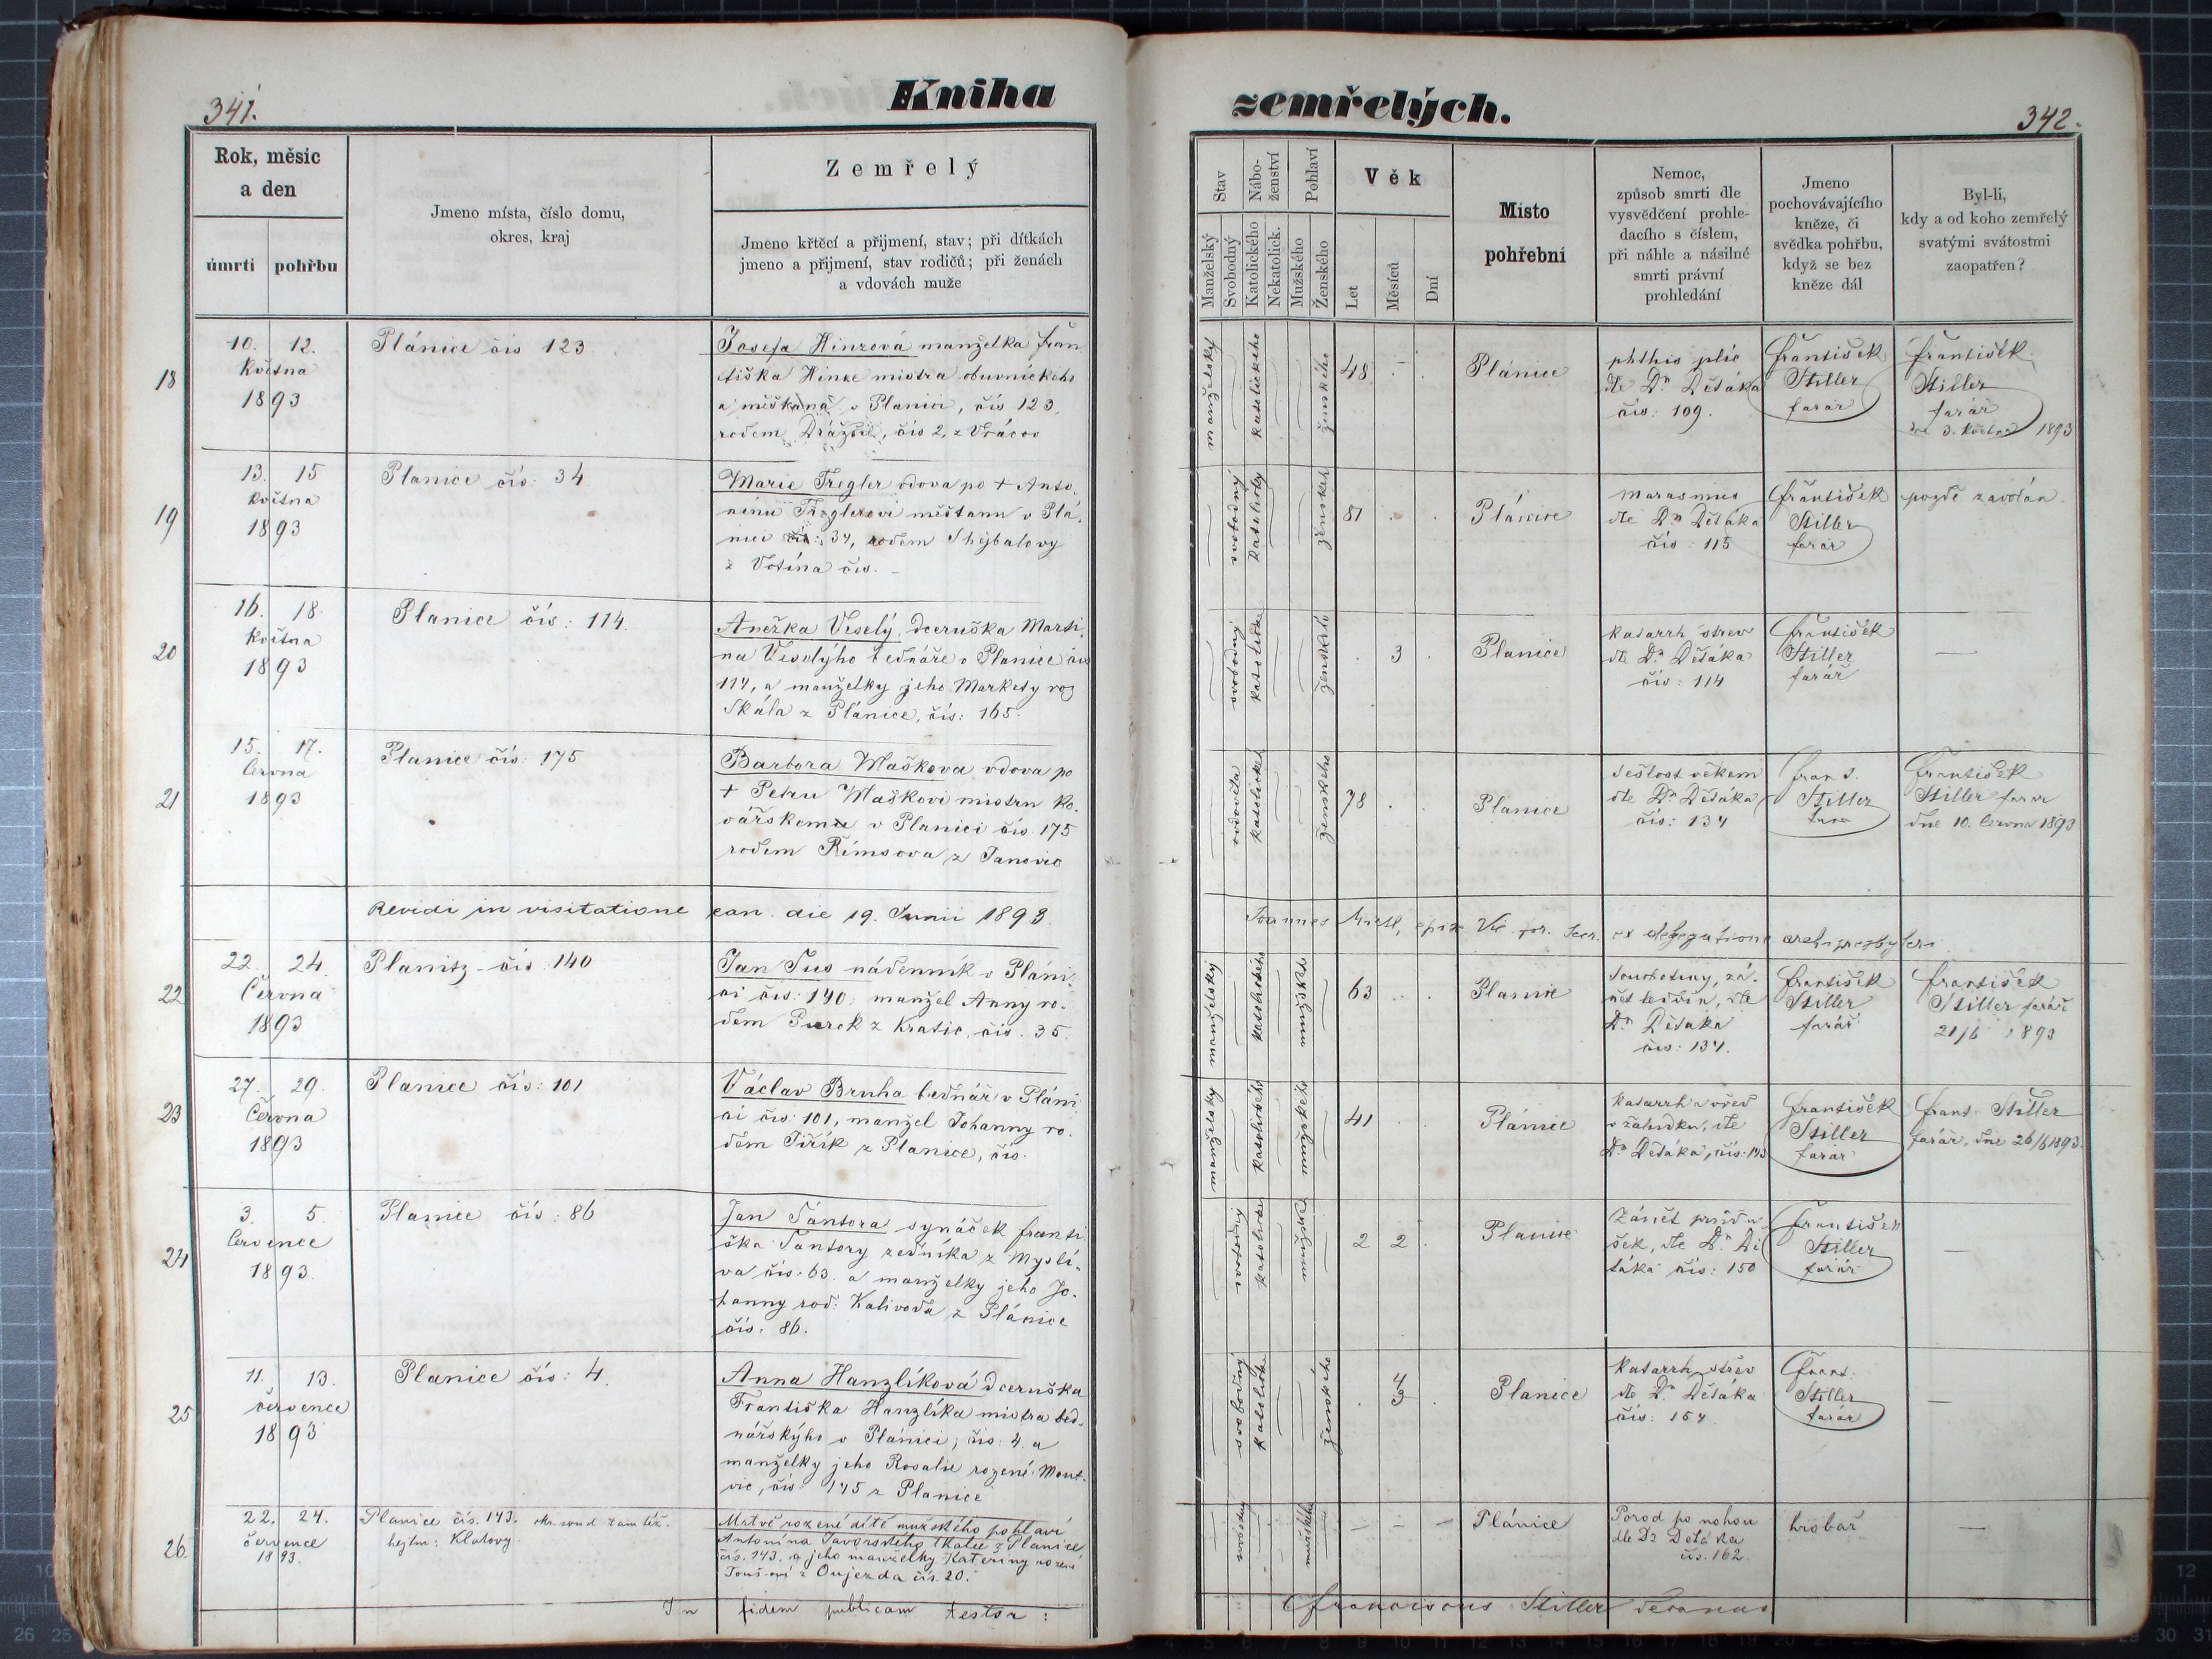 341.
Kniha
Rok, měsíc
a den
úmrtí
pohřbu
Jmeno místa, číslo domu,
okres, kraj
Zemřelý
Jmeno křtěcí a přijmení, stav; při dítkách
jmeno a přijmení, stav rodičů; při ženách
a vdovách muže
18
10. 12.
Května
1893
Plánice čís 123
Josefa Hinzová manželka Fran
tiška Hinze mistra obuvnického
a měšťana v Plánici, čís 123,
rodem, čís 2, z
19
13. 15
Května
1893
Planice čís: 34
Marie Tregler vdova po + Anto
nínu Treglerovi měšťanu v Plá
nici čís: 34, rodem Shejbalovy
z Votína čís. –
20
16. 18.
Května
1893
Planice čís: 114.
Anežka Veselý, dceruška Marti
na Veselýho bednáře v Planice čís
114, a manželky jeho Markety roz
Skála z Plánice, čís: 165.
21
15. 17.
Června
1893
Planice čís: 175
Barbora Maškova vdova po
+ Petru Maškovi mistru ko-
vářskemu v Planici čís. 175
rodem Římsova z Janovic
Revidi in visitatione can. die 19. Junii 1893.
22
22. 24.
Června
1893
Planitz čís. 140
Jan Tus nádenník v Pláni-
ci čís: 140: manžel Anny ro-
dem Turek z Kratic, čís. 35.
23
27. 29.
Června
1893
Planice čís: 101
Václav Bruha bednář v Pláni
ci čís: 101, manžel Johanny ro-
dem Jiřík z Planice, čís.
24
3. 5.
Července
1893.
Planice čís: 86
Jan Šantora synáček Franti
ška Šantory zedníka z Myslí-
va čís: 63. a manželky jeho Jo-
hanny rod: Kalivoda z Plánice
čís: 86.
25
11. 13.
července
1893
Planice čís: 4.
Anna Hanzlíková dceruška
Františka Hanzlíka mistra bed-
nářskýho v Plánici; čís: 4. a
manželky jeho Rosalie rozené
čís: 145 z Planice
26.
22. 24.
července
1893.
Planice čís. 143. okr. soud tamtéž.
hejtm: Klatovy.
Mrtvě rozené dítě mužského pohlaví
Antonína Javorského tkalce z Planice
čís. 143. a jeho manželky Kateřiny rozené
z Oujezda čís. 20.
In fidem publicam testor:
zemřelých.
342.
Stav
Nábo-
ženství
Pohlaví
Manželský
Svobodný
Katolického
Nekatolick.
Mužského
Ženského
Věk
Let
Měsíců
Dní
Místo
pohřební
Nemoc,
způsob smrti dle
vysvědčení prohle-
dacího s číslem,
při náhle a násilné
smrti právní
prohledání
Jmeno
pochovávajícího
kněze, či
svědka pohřbu,
když se bez
kněze dál
Byl-li,
kdy a od koho zemřelý
svatými svátostmi
zaopatřen?
manželský
katolického
ženského
48
Plánice
phthis plic
dle Dra Děťáka
čís: 109.
František
Stiller
farář
František
Stiller
farář
dne 3. Května 1893
svobodný
katolický
ženské
81
Plánice
marasmus
dle Dra Děťáka
čís: 115
František
Stiller
farář
pozdě zavolán.
svobodný
katolické
ženské
3
Planice
Katarrh střev
dle Dra Děťáka
čís: 114
František
Stiller
farář
—
vdovělá
katolické
ženského
78
Planice
Sešlost věkem
dle Dra Děťáka
čís: 134
Frant.
Stiller
farář
František
Stiller farář
dne 10. Června 1893
Joannes vic. for. Secr. ex delegatione archipresbyteri
manželský
katolického
mužské
63
Planice
Souchotiny, zá-
nět ledvin, dle
Dra Děťáka
čís: 137.
František
Stiller
farář
František
Stiller farář
21/6 1893
manželský
katolického
mužského
41
Plánice
Katarrh a vřed
v žaludku, dle
Dra Děťáka, čís: 143
František
Stiller
farář
Frant. Stiller
farář, dne 26/6 1893.
svobodný
katolické
mužské
2 2
Planice
Zánět průdu
šek, dle Dra Dě
ťáka čís: 150
František
Stiller
farář
—
svobodný
katolické
ženského
4
3
Planice
Katarrh střev
dle Dra Děťáka
čís: 154.
Frant.
Stiller
farář
—
svobodný
mužského
— — —
Plánice
Porod po nohou
dle Dra Děťáka
čís. 162.
hrobař
—
Franciscus Stiller decanus